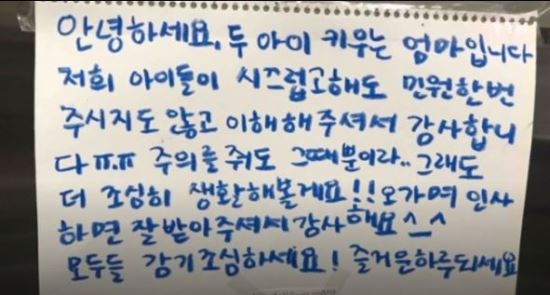 안녕하세요, 두 아이 키우는 엄마입니다
저희 아이들이 시끄럽고해도 민원한번
주시지도 않고 이해해주셔서 감사합니
다ㅠㅠ 주의를줘도 그때뿐이라.. 그래도
더 조심히 생활해볼게요!! 오가며 인사
하면 잘받아주셔서 감사해요^_^
모두들 감기조심하세요! 즐거운하루되세요